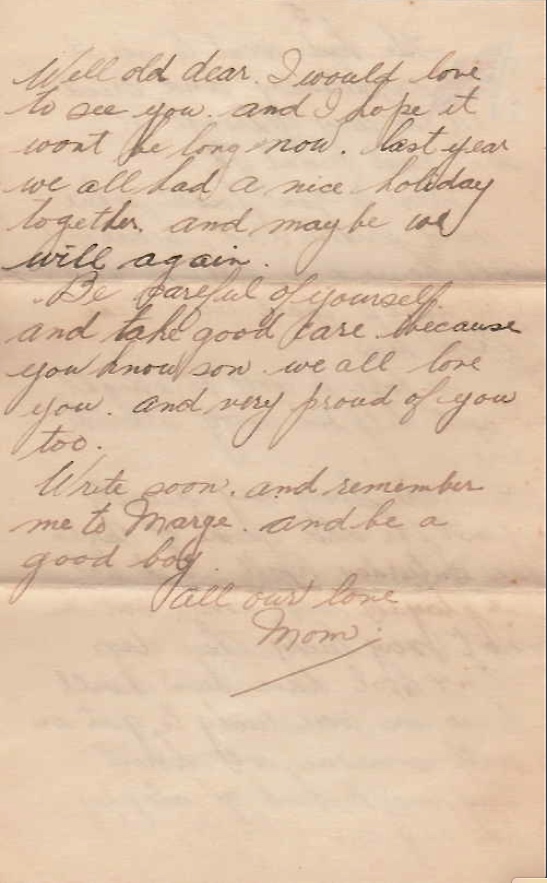 Well old dear. I would love
to see you. and I hope it
wont be long now. last year
we all had a nice holiday
together. and maybe we
will again.
Be careful of yourself.
and take good care. because
you know son. we all love
you. and very proud of you
too.
Write soon. and remember
me to Marge. and be a
good boy.
all our love
Mom.